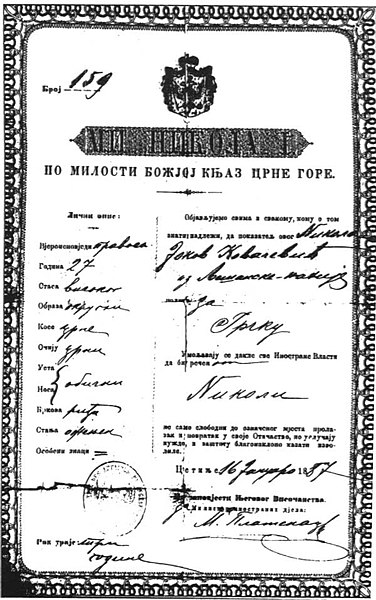 Број 159
МИ НИКОЛА I.
ПО МИЛОСТИ БОЖЈОЈ КЊАЗ ЦРНЕ ГОРЕ.
Лични опис:
Вјероисповједи правосл
Година 27
Стаса високог
Образа округли
Косе црне
Очију црни
Уста
Носа } обични
Бркова
Стања ожењен
Особени знаци =
Рок траје
године
Објављујемо свима и свакому, кому о том
знати надлежи, да показатељ овог Никола
Јоков Ковачевић
од
путује за
Грчку
Умољавају се дакле све Иностране Власти
да би речен ом
Николи
не само слободни до означеног мјеста пролазак
и повратак у своје Отачество, но у случају
нужде, и заштиту благонаклоно казати изволиле.
Цетиње 16 1887
Височанства.
Министар иностраних дјела: